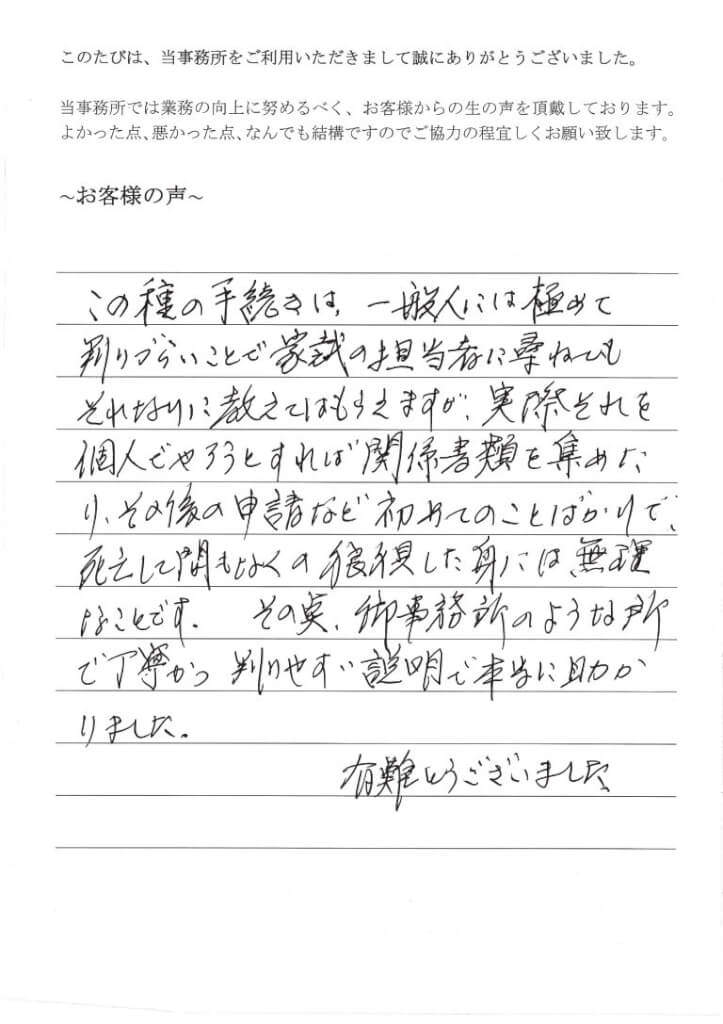 このたびは、当事務所をご利用いただきまして誠にありがとうございました。
当事務所では業務の向上に努めるべく、お客様からの生の声を頂戴しております。
よかった点、悪かった点、なんでも結構ですのでご協力の程宜しくお願い致します。
～お客様の声～
この種の手続きは、一般人には極めて
判りづらいことで家裁の担当者に尋ねても
それなりに教えてはもらえますが、実際それを
個人でやろうとすれば関係書類を集めた
り、その後の申請など初めてのことばかりで、
死亡して間もなくの疲弊した身には無理
なことです。 その点、御事務所のような所
で丁寧かつ判りやすい説明で本当に助か
りました。
有難とうございました